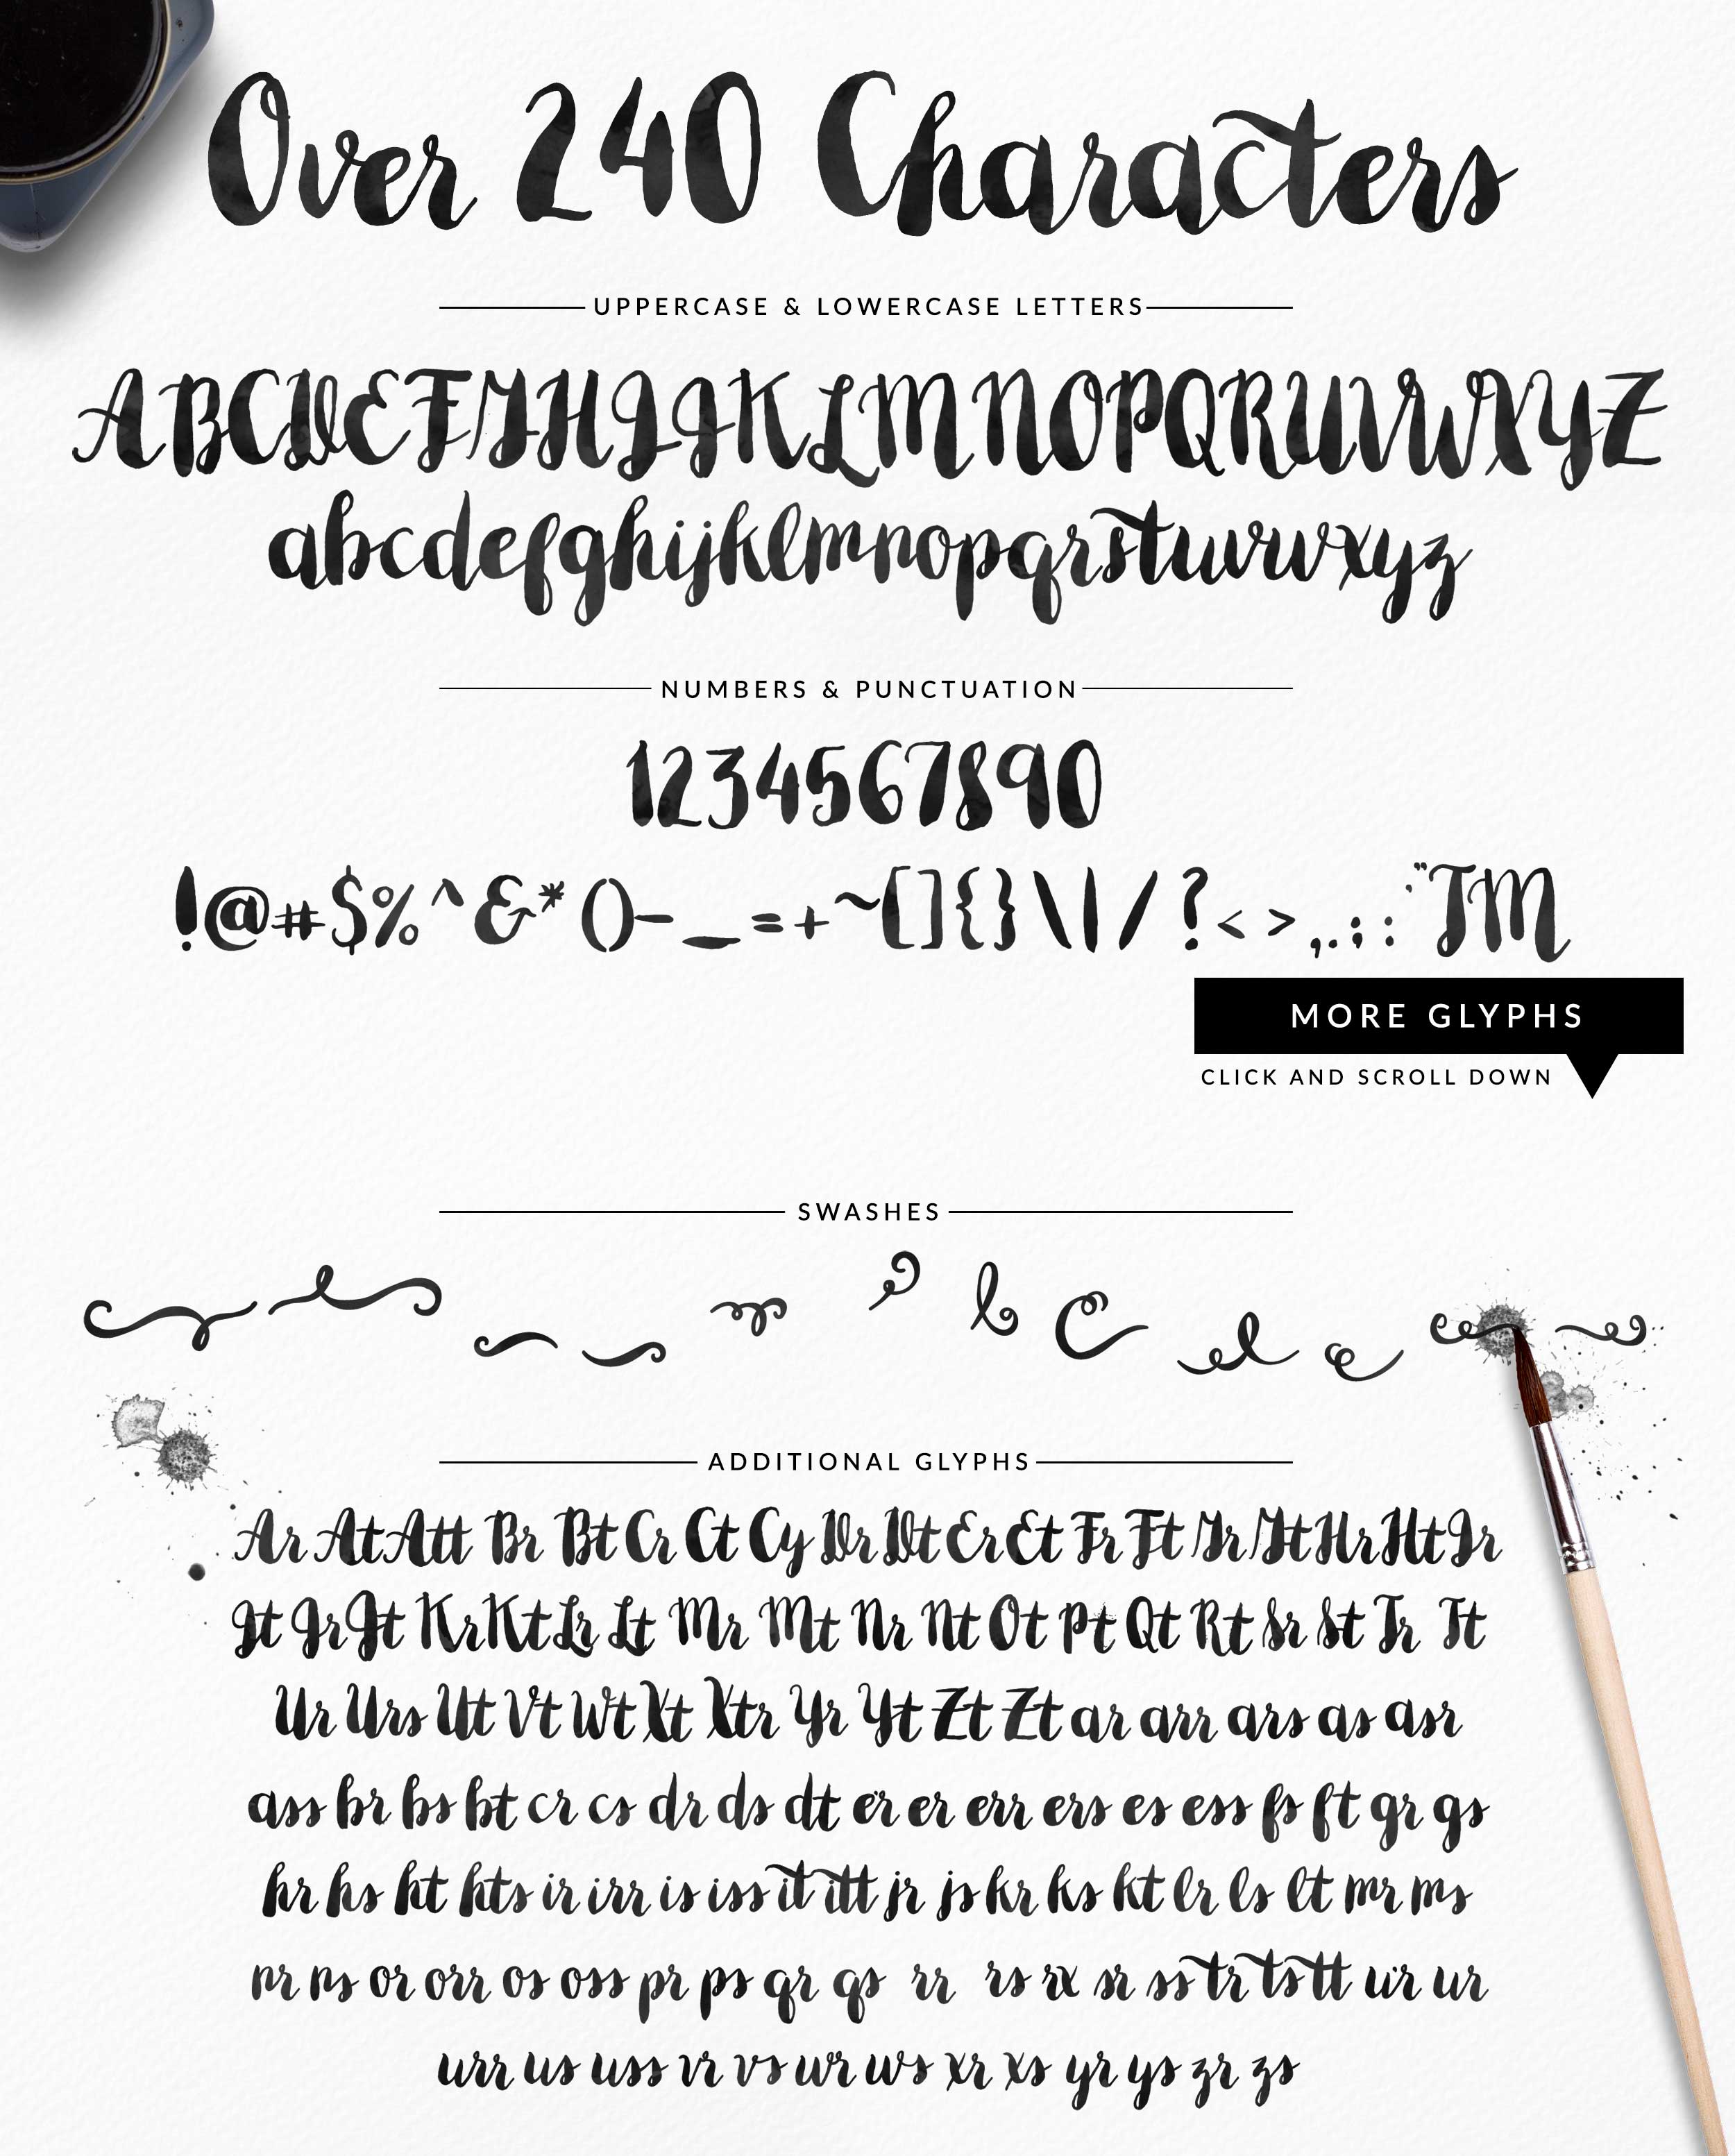 Over 240 Characters
UPPERCASE & LOWERCASE LETTERS
ABCDEFGHIJKLMNOPQRUVWXYZ
abcdefghijklmnopqrstuvwxyz
NUMBERS & PUNCTUATION
1234567890
!@#$%^&*()-_=+~[]{}\|/?<>,.;:'"TM
MORE GLYPHS
CLICK AND SCROLL DOWN
SWASHES
ADDITIONAL GLYPHS
Ar At Att Br Bt Cr Ct Cy Dr Dt Er Et Fr Ft Gr Gt Hr Ht Ir
It Jr Jt Kr Kt Lr Lt Mr Mt Nr Nt Ot Pt Qt Rt Sr St Tr Tt
Ur Urs Ut Vt Wt Xt Xtr Yr Yt Zt Zt ar arr ars as asr
ass br bs bt cr cs dr ds dt er er err ers es ess fs ft gr gs
hr hs ht hts ir irr is iss it itt jr js kr ks kt lr ls lt mr ms
nr ns or orr os oss pr ps qr qs rr rs rx sr ss tr ts tt ur ur
urr us uss vr vs wr ws xr xs yr ys zr zs